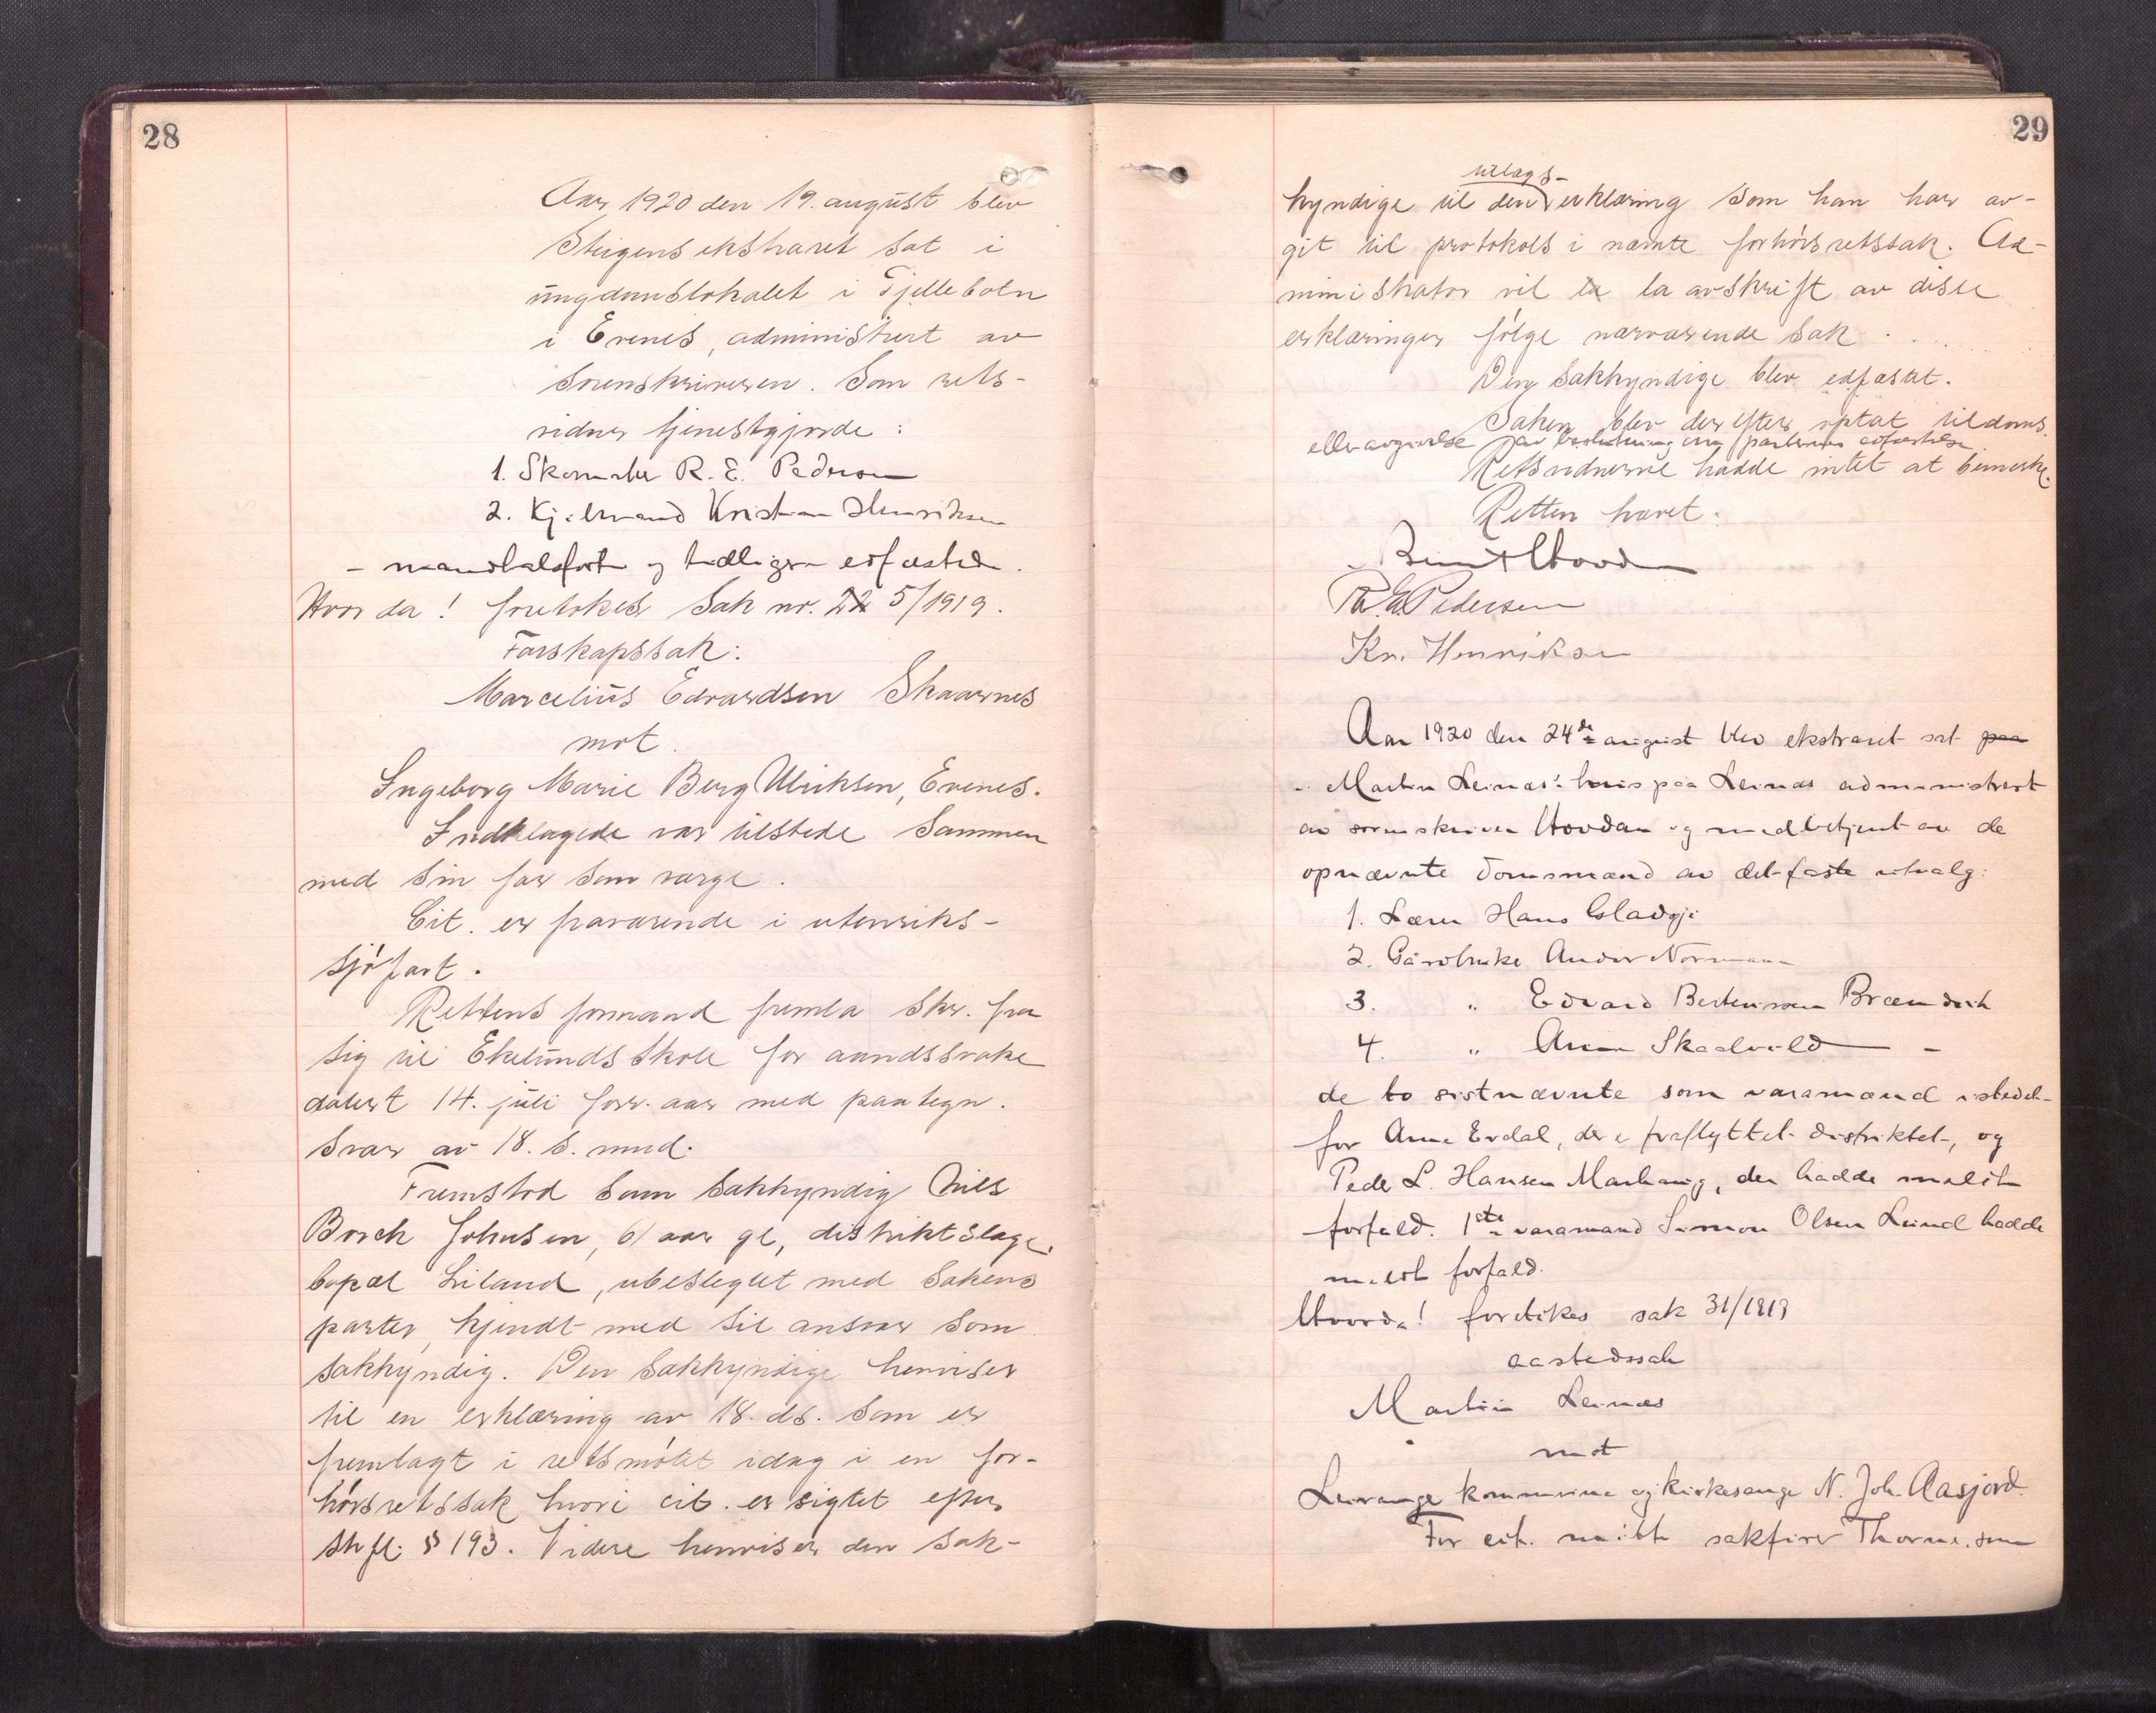 28
Aar 1920 den 19. august blev
Steigens ekstraret sat i
ungdomslokalet i Fjellebotn
i Evenes, administrert av
Sorenskriveren. Som rets-
vidner tjenestgjorde:
1. Skomaker R. E. Pedersen
2. Kjøbmand Kristian Henriksen
- mandtalsført og tidligere edfæstede.
Hvor da! foretokes Sak nr. 5/1919.
Farskapssak:
Marcelius Edvardsen Skaarnes
mot.
Ingeborg Marie Berg Ulriksen, Evenes.
Indklagede var tilstede sammen
med sin far som værge.
Cit. er fraværende i utenriks-
sjøfart.
Rettens formand fremla skr. fra
sig til Ekelunds Skole for aandssvake
datert 14. juli forr. aar med paategn.
svar av 18. s. mnd.
Fremstod som sakkyndig Nils
Borch Johnsen, 61 aar gl, distriktslæge,
bopæl Liland, ubeslegtet med Sakens
parter, kjendt med sit ansvar som
sakkyndig. Den Sakkyndige henviser
til en erklæring av 18. ds. som er
fremlagt i retsmøtet idag i en for-
hørsretssak hvori cit. er sigtet efter
strfl. § 193. Videre henviser den Sak-
29
utlægs-
kyndige til den erklæring som han har av-
git til protokols i nævnte forhørsretssak. Ad-
ministrator vil la avskrift av disse
erklæringer følge nærværende Sak.
Den Sakkyndige blev edfæstet.
Saken blev derefter optat til doms
eller avgivelse av beslutning om parternes edfæstelse
Retsvidnerne hadde intet at bemerke.
Retten hævet.
R. E. Pedersen
Kr. Henriksen
Aar 1920 den 24de august blev ekstraret sat paa
i Martin Leinæs' hus paa Leinæs administrert
av sorenskriver Hovdan og medbetjent av de
opnævnte domsmænd av det faste utvalg:
1. Lærer Hans Gladsjø
2. Gårdbruker Andor Normann
3. " Edvard Berteussen Brændvik
4. " Skaalvold -
de to sistnævnte som varamænd istedet-
for Arne Evdal, der er fraflyttet distriktet, og
Peder L. Hansen Markaug, der hadde meldt
forfald. 1ste varamand Simon Olsen Leines hadde
meldt forfald.
Hvorda! foretokes sak 31/1919
aastedssak
Martin Leinæs
mot
Leiranger kommune og kirkesanger N. Joh. Aasjord.
For cit. møtte sakfører Thorne, som